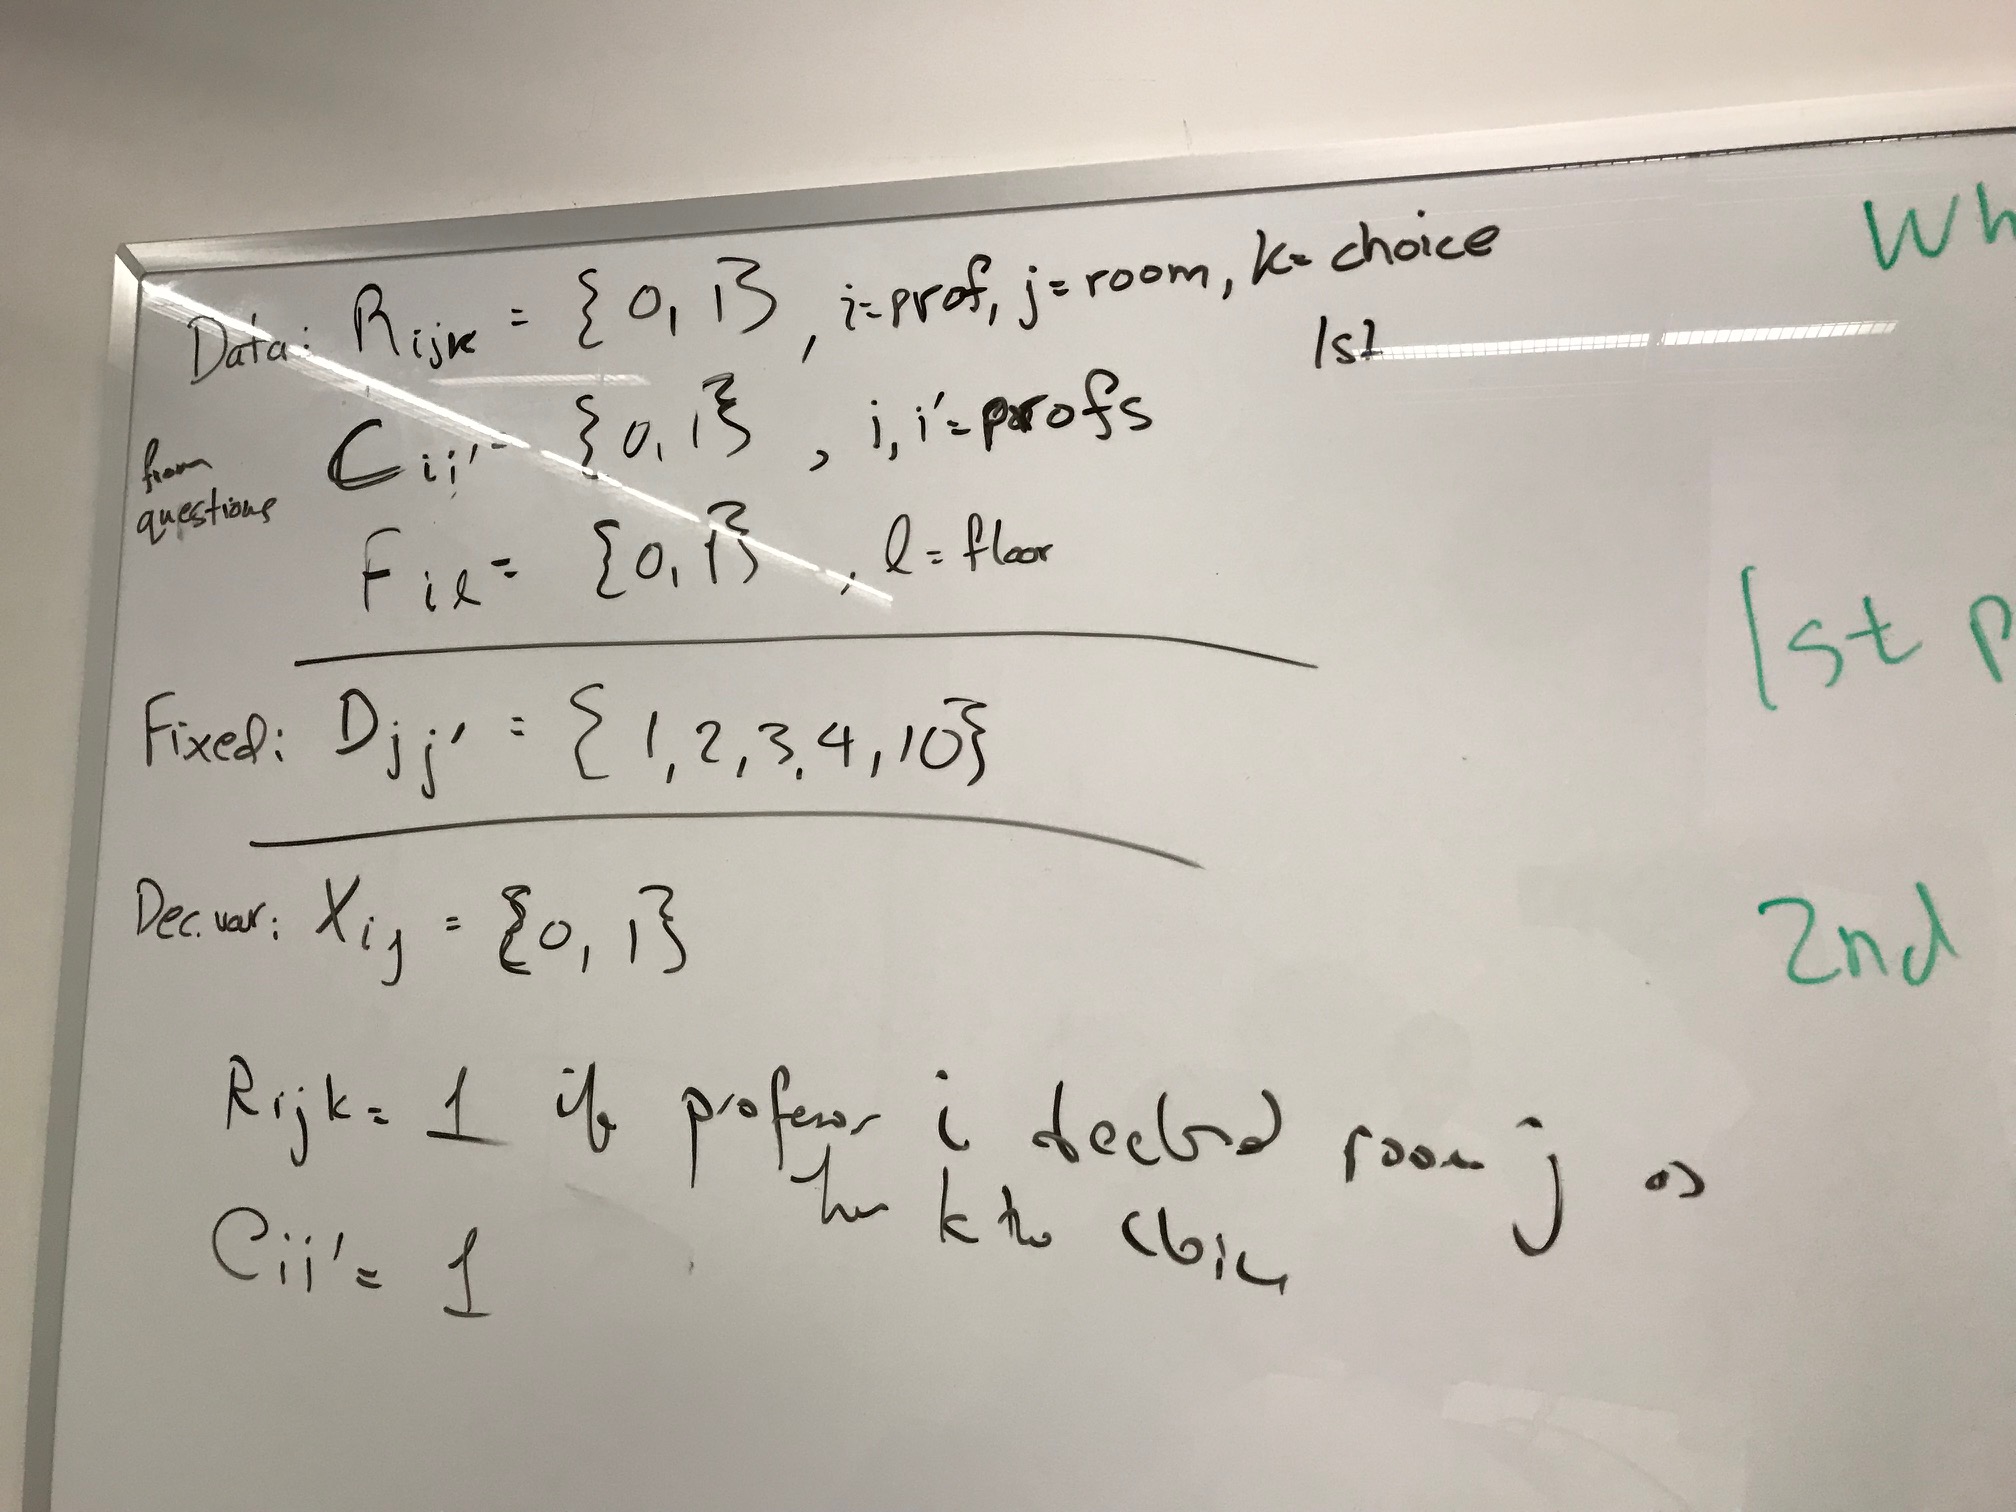 Data: Rijk = {0, 1}, i=prof, j=room, k= choice
1st
from questions
Cii' = {0, 1}, i, i'= profs
Fiℓ = {0, 1}, ℓ = floor
Fixed: Djj' = {1,2,3,4,10}
Dec. var: Xij = {0, 1}
Rijk = 1 if professor i declared room j as
her kth choice
Cii' = 1
Wh
1st p
2nd